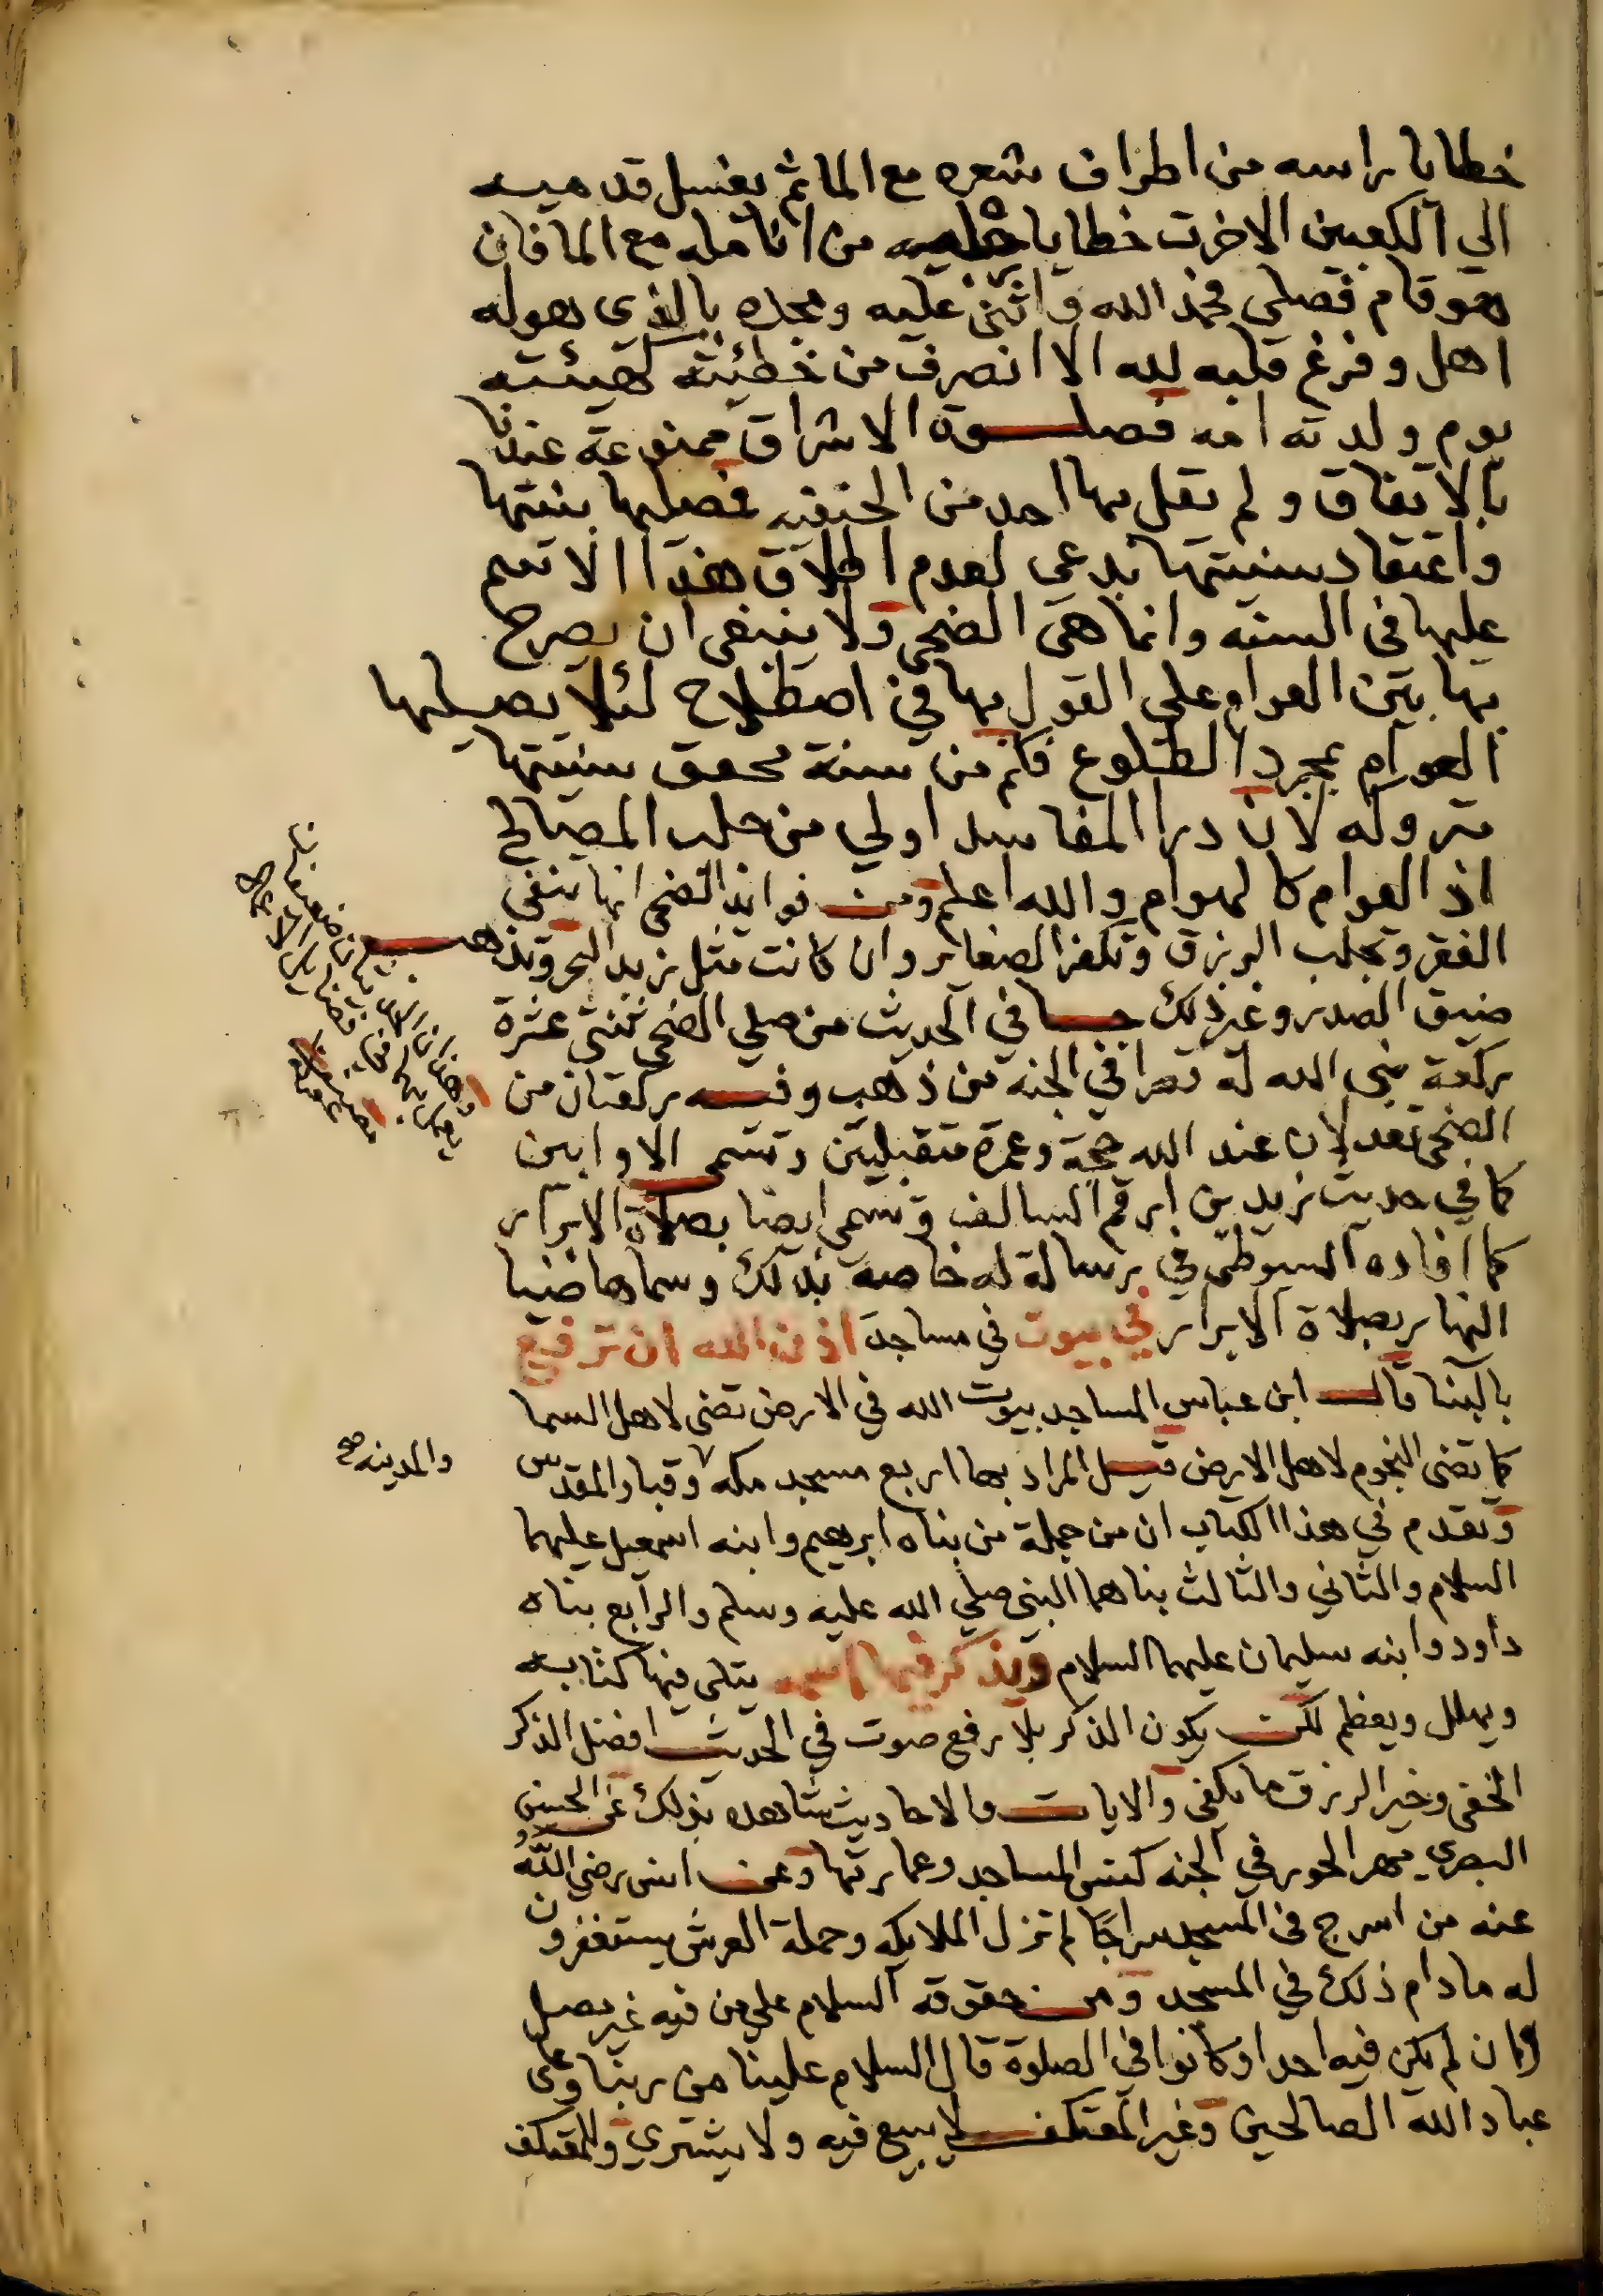 خطايا راسه من اطراف شعره مع الما ثم يغسل قدميه
الي الكعبين الا خرت خطايا رجليه من انامله مع الما فان
هو قام فصلي فحمد الله واثنى عليه ومجده بالذي هو له
اهل وفرغ قلبه لله الا انصرف من خطيئته كهيئته
يوم ولدته امه فصلوة الاشراق ممنوعة عندنا
بالاتفاق ولم يقل بها احد من الحنفيه فصليها بنيتها
واعتقاد سنيتها بدعي لعدم اطلاق هذا الاسم
عليها في السنه وانما هي الضحى ولا ينبغي ان يصرح
بها بين العوام علي القول بها في اصطلاح لئلا يصليها
العوام بمجرد الطلوع فكم من سنة محقق سنيتها
متروكه لان درا المفاسد اولي من جلب المصالح
اذ العوام كالهوام والله اعلم ومن فوايد الضحى انها تنفي
الفقر وتجلب الرزق وتكفر الصغاير وان كانت مثل زبد البحر وتذهب
ضيق الصدر وغير ذلك جا في الحديث من صلي الضحى ثنتي عشرة
ركعة بنى الله له قصرا في الجنه من ذهب وفيه ركعتان من
الضحى تعدلان عند الله حجة وعمرة متقبلتين وتسمى الاوابين
كما في حديث زيد بن ارقم السالف وتسمى ايضا بصلاة الابرار
كما افاده السيوطي في رسالة له خاصة بذلك وسماها ضيا
النهار بصلاة الابرار في بيوت في مساجد اذن الله ان ترفع
بالبنا قال ابن عباس المساجد بيوت الله في الارض تضى لاهل السما
كما تضى النجوم لاهل الارض قيل المراد بها اربع مسجد مكه وقبا والمقدس
والمدينه صح
وتقدم في هذا الكتاب ان من جملة من بناه ابرهيم وابنه اسمعيل عليهما
السلام والثاني والثالث بناهما النبي صلي الله عليه وسلم والرابع بناه
داود وابنه سليمان عليهما السلام ويذكر فيها اسمه يتلى فيها كتابه
ويهلل ويعظم لكن يكون الذكر بلا رفع صوت في الحديث افضل الذكر
الخفى وخير الرزق ما يكفى والايات والاحاديث شاهده بذلك عن الحسن
البصري مهر الحور في الجنه كنس المساجد وعمارتها وعن انس رضي الله
عنه من اسرج في المسجد سراجًا لم تزل الملايكه وحملة العرش يستغفرون
له مادام ذلك في المسجد ومن حقوقه السلام علي من فيه غير مصل
وان لم يكن فيه احد او كانوا في الصلوة قال السلام علينا من ربنا وعلى
عباد الله الصالحين وغير المعتكف لا يبيع فيه ولا يشتري وللمعتكف